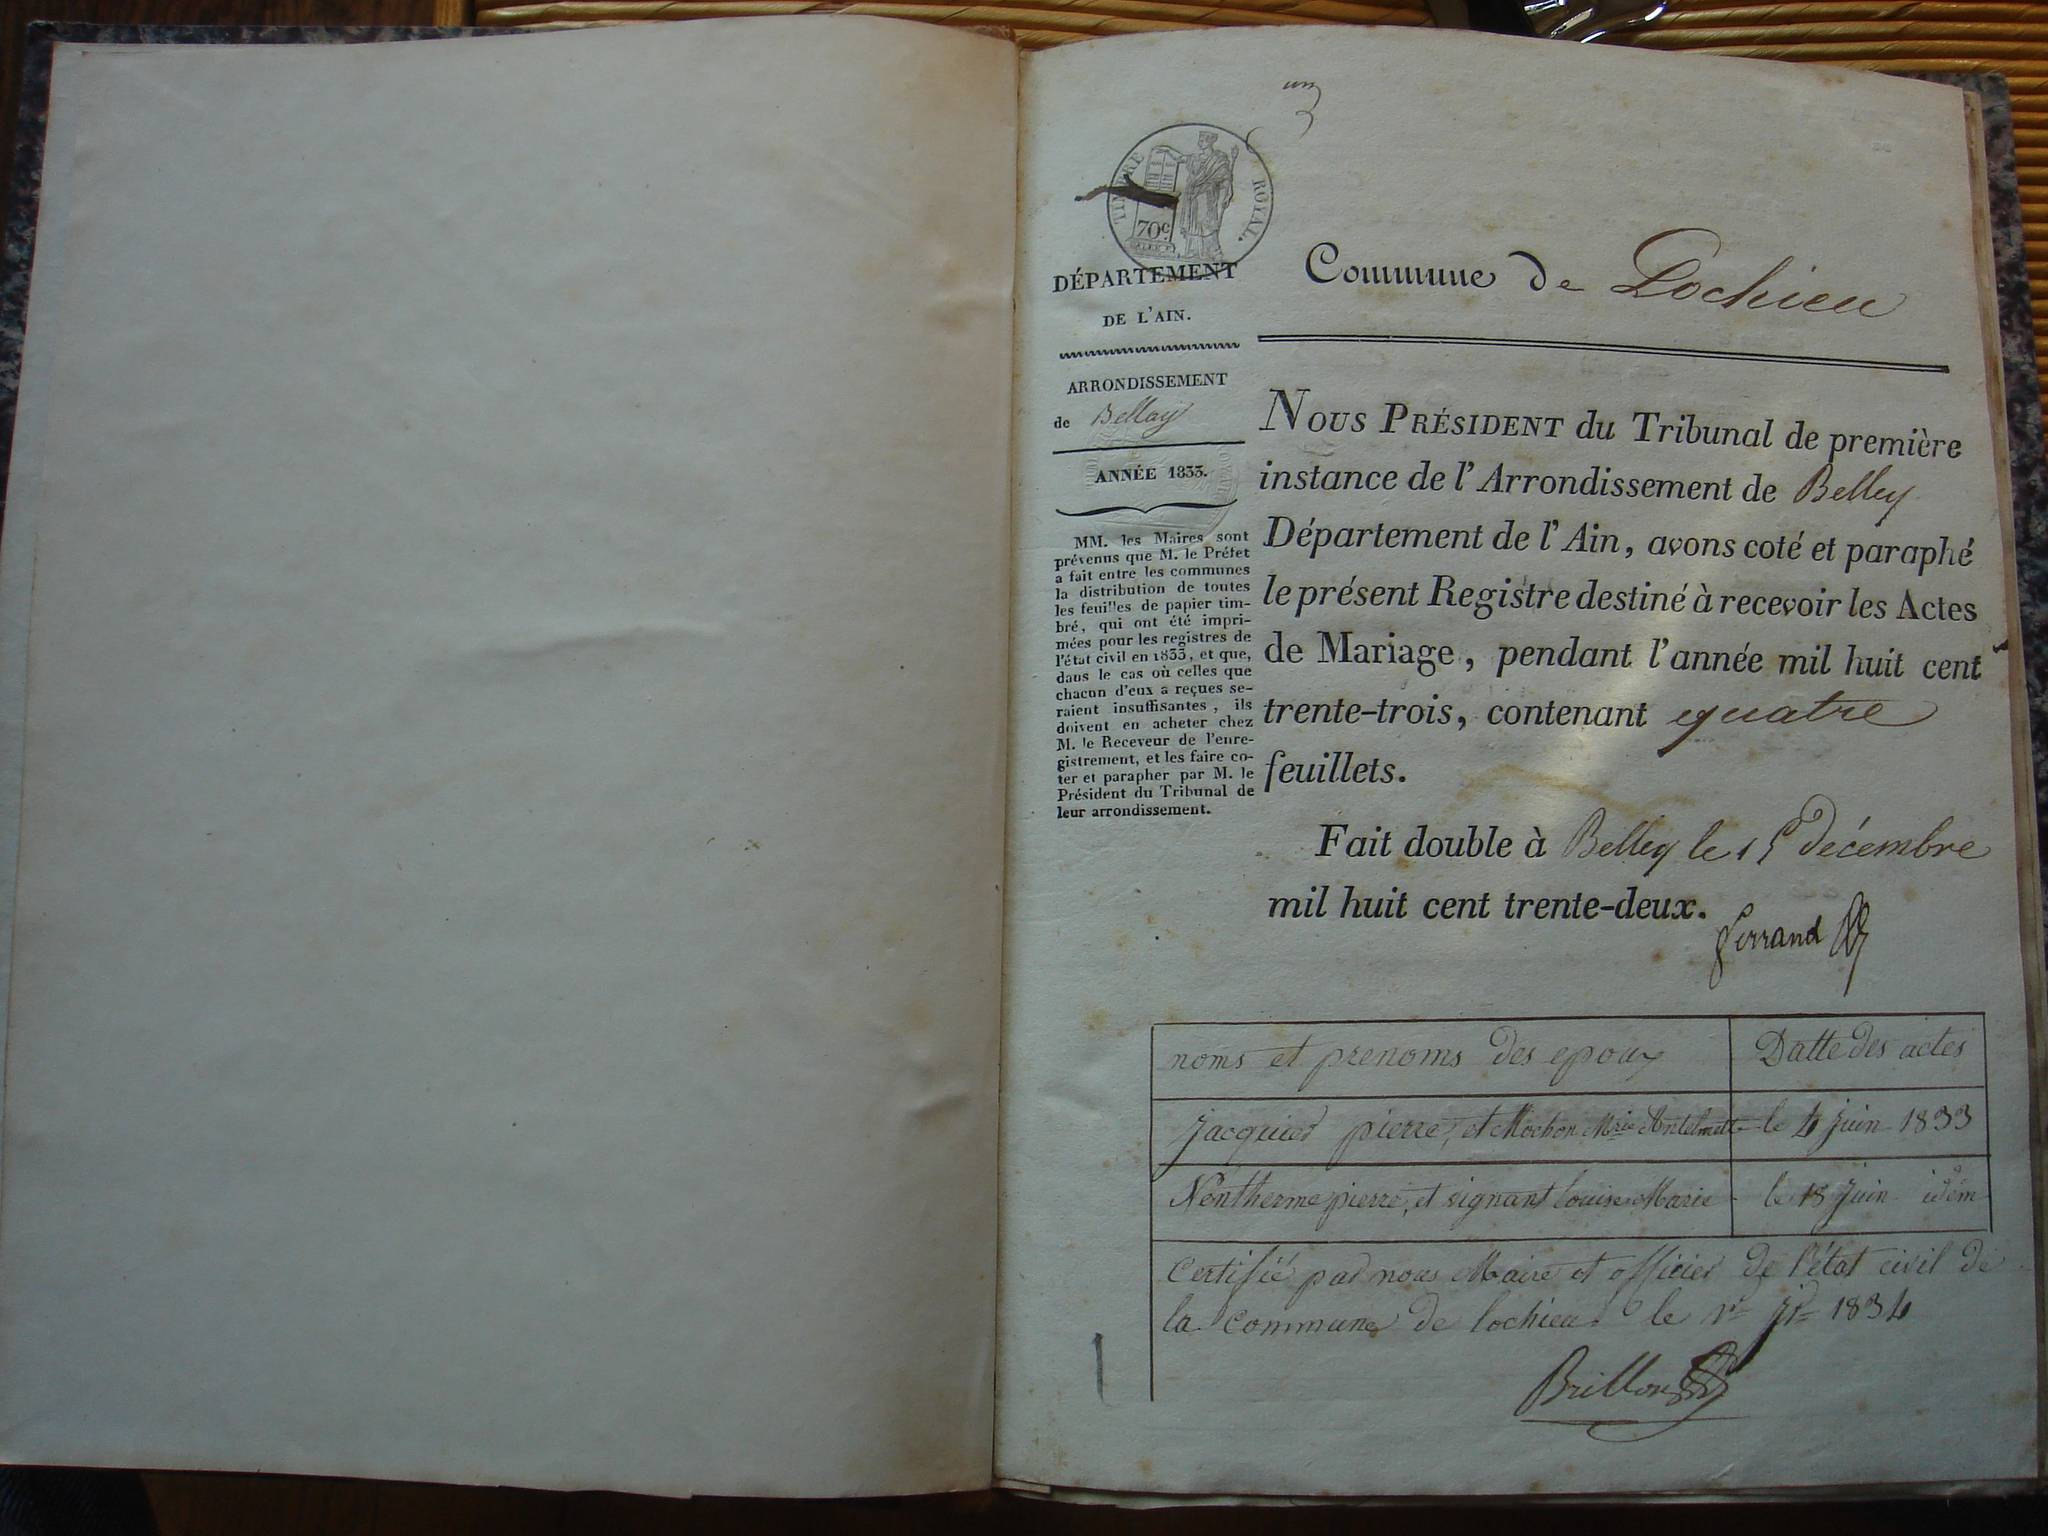 un
TIMBRE ROYAL.
70c
DÉPARTEMENT
DE L'AIN.
ARRONDISSEMENT
de Belley
ANNÉE 1833.
MM. les Maires sont
prévenus que M. le Préfet
a fait entre les communes
la distribution de toutes
les feuilles de papier tim-
bré, qui ont été impri-
mées pour les registres de
l'état civil en 1833, et que,
dans le cas où celles que
chacun d'eux a reçues se-
raient insuffisantes, ils
doivent en acheter chez
M. le Receveur de l'enre-
gistrement, et les faire co-
ter et parapher par M. le
Président du Tribunal de
leur arrondissement.
Commune de Lochieu
NOUS PRÉSIDENT du Tribunal de première
instance de l'Arrondissement de Belley
Département de l'Ain, avons coté et paraphé
le présent Registre destiné à recevoir les Actes
de Mariage, pendant l'année mil huit cent
trente-trois, contenant quatre
feuillets.
Fait double à Belley le 15 décembre
mil huit cent trente-deux.
Ferrand
noms et prenoms des epoux Datte des actes
Jacquier pierre, et Mochon Mrie Antelmette le 4 juin 1833
Montherme pierre, et vignant louise Marie le 18 juin idem
Certifié par nous Maire et officier de l'état civil de
la commune de lochieu le 1834
Brillon